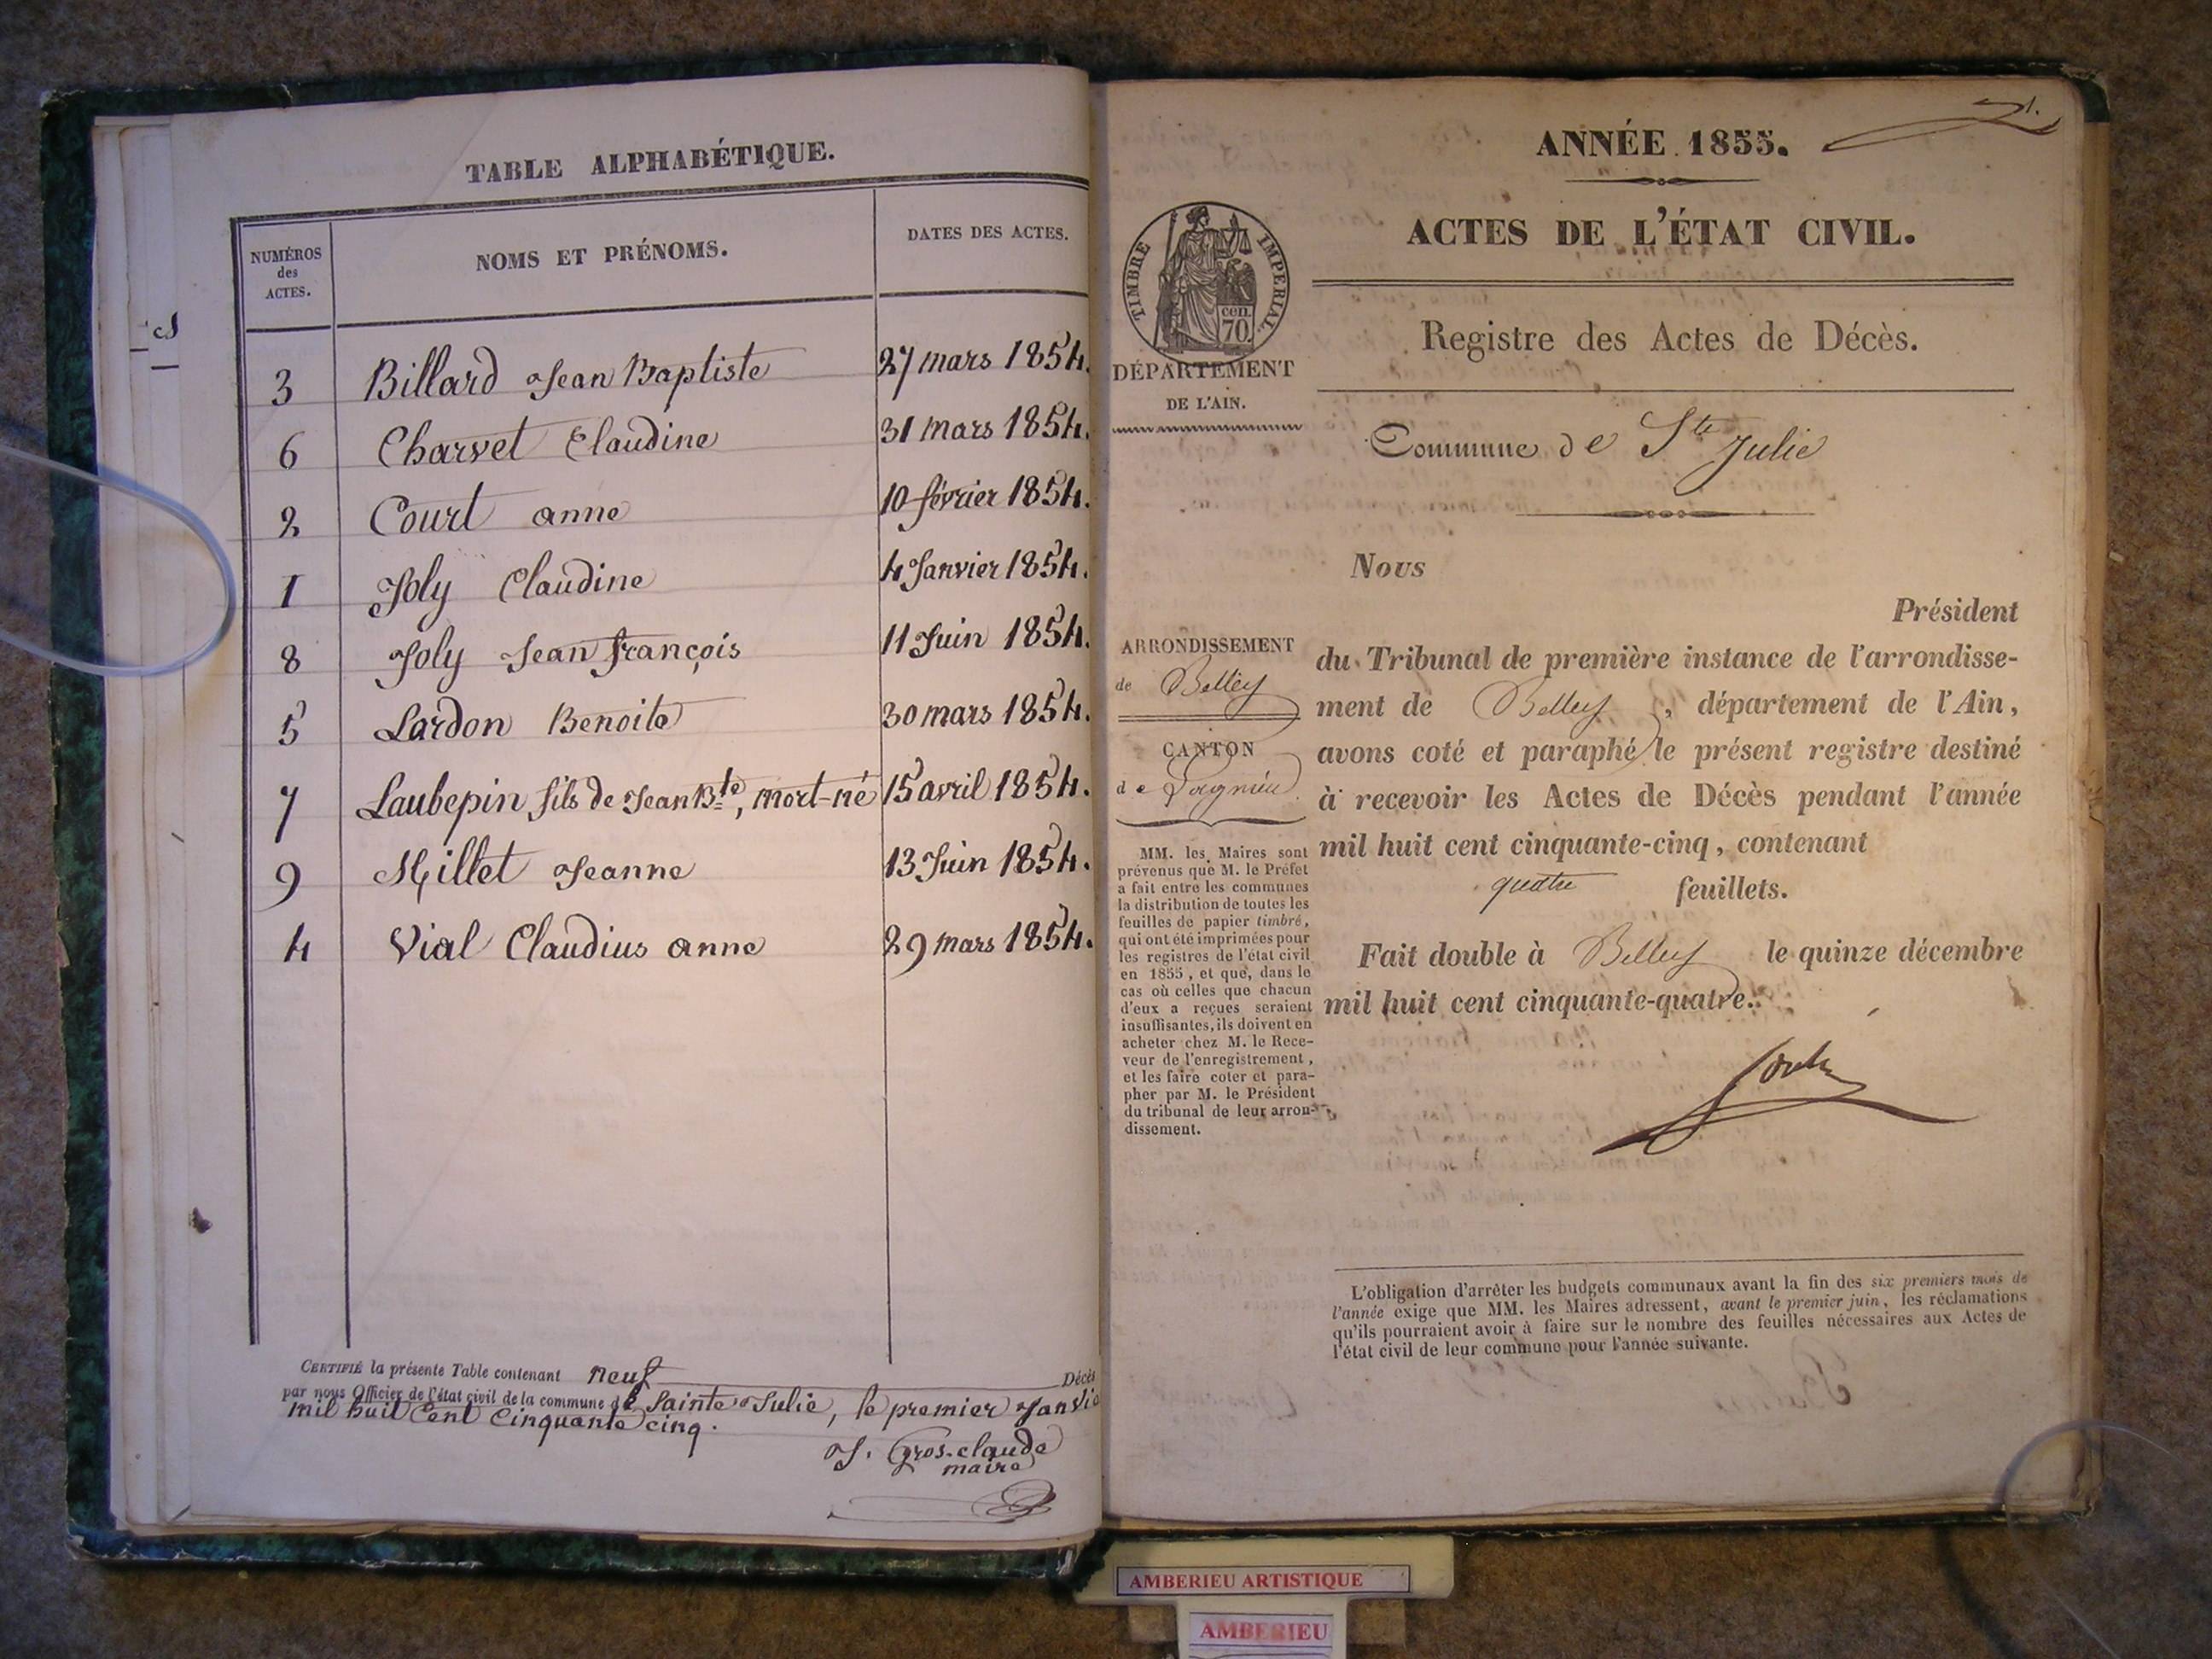 TABLE ALPHABÉTIQUE.
NUMÉROS des ACTES.
NOMS ET PRÉNOMS.
DATES DES ACTES.
3 Billard Jean Baptiste 27 mars 1854.
6 Charvet Claudine 31 mars 1854.
2 Court anne 10 février 1854.
1 Joly Claudine 4 Janvier 1854.
8 Joly Jean françois 11 Juin 1854.
5 Lardon Benoite 30 mars 1854.
7 Laubepin fils de Jean Bte, mort-né 15 avril 1854.
9 Millet Jeanne 13 Juin 1854.
4 Vial Claudius anne 29 mars 1854.
CERTIFIÉ la présente Table contenant neuf Décès
par nous Officier de l'état civil de la commune de Sainte Julie, le premier Janvie
mil huit Cent Cinquante cinq.
J. Gros-claude
maire
1.
ANNÉE 1855.
ACTES DE L'ÉTAT CIVIL.
TIMBRE IMPERIAL.
cen.
70.
DÉPARTEMENT
DE L'AIN.
Registre des Actes de Décès.
Commune de Ste Julie
Nous
Président
du Tribunal de première instance de l'arrondisse-
ment de Belley, département de l'Ain,
avons coté et paraphé le présent registre destiné
à recevoir les Actes de Décès pendant l'année
mil huit cent cinquante-cinq, contenant
quatre feuillets.
Fait double à Belley le quinze décembre
mil huit cent cinquante-quatre.
ARRONDISSEMENT
de Belley
CANTON
de Lagnieu
MM. les Maires sont
prévenus que M. le Préfet
a fait entre les communes
la distribution de toutes les
feuilles de papier timbré,
qui ont été imprimées pour
les registres de l'état civil
en 1855, et que, dans le
cas où celles que chacun
d'eux a reçues seraient
insuffisantes, ils doivent en
acheter chez M. le Rece-
veur de l'enregistrement,
et les faire coter et para-
pher par M. le Président
du tribunal de leur arron-
dissement.
L'obligation d'arrêter les budgets communaux avant la fin des six premiers mois de
l'année exige que MM. les Maires adressent, avant le premier juin, les réclamations
qu'ils pourraient avoir à faire sur le nombre des feuilles nécessaires aux Actes de
l'état civil de leur commune pour l'année suivante.
AMBERIEU ARTISTIQUE
AMBERIEU